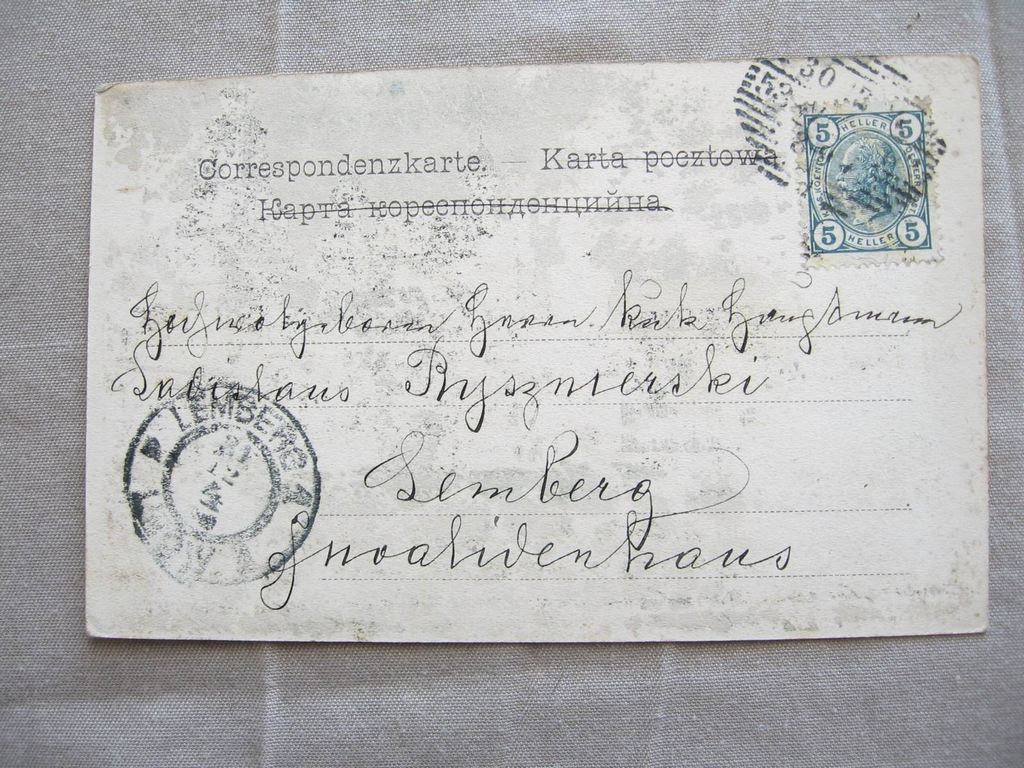 Correspondenzkarte. — Karta pocztowa
Карта кореспонденцийна.
5 HELLER 5
5 HELLER 5
Hochwohlgeboren Herrn kuk Hauptmann
Ladislaus Ryszmierski
Lemberg
Invalidenhaus
LEMBERG 1